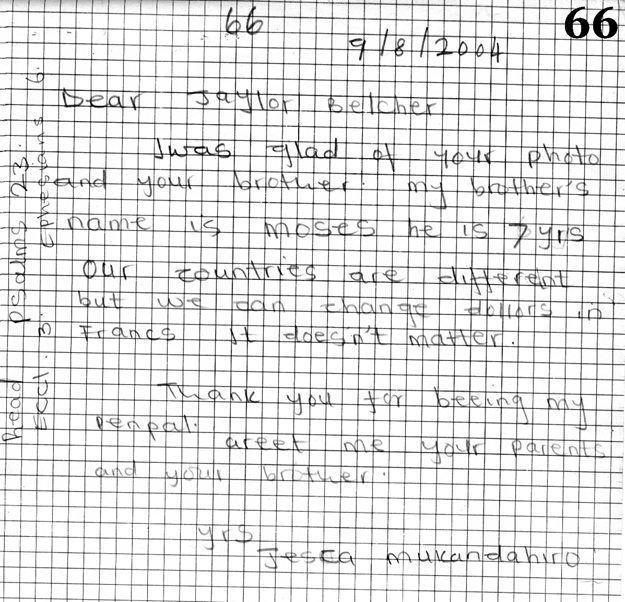 66
66
9/8/2004
Dear Jaylor Belcher
Iwas glad of your photo
and your brother. my brother's
name is moses he is 7 yrs
our countries are different
but we can change dollors in
Francs It doesn't matter.
Thank you for beeing my
penpal.
Greet me your parents
and your brother.
yrs
Jesca mukandahiro
Read Psalms 23.
Eccl. 3. Ephesians 6.